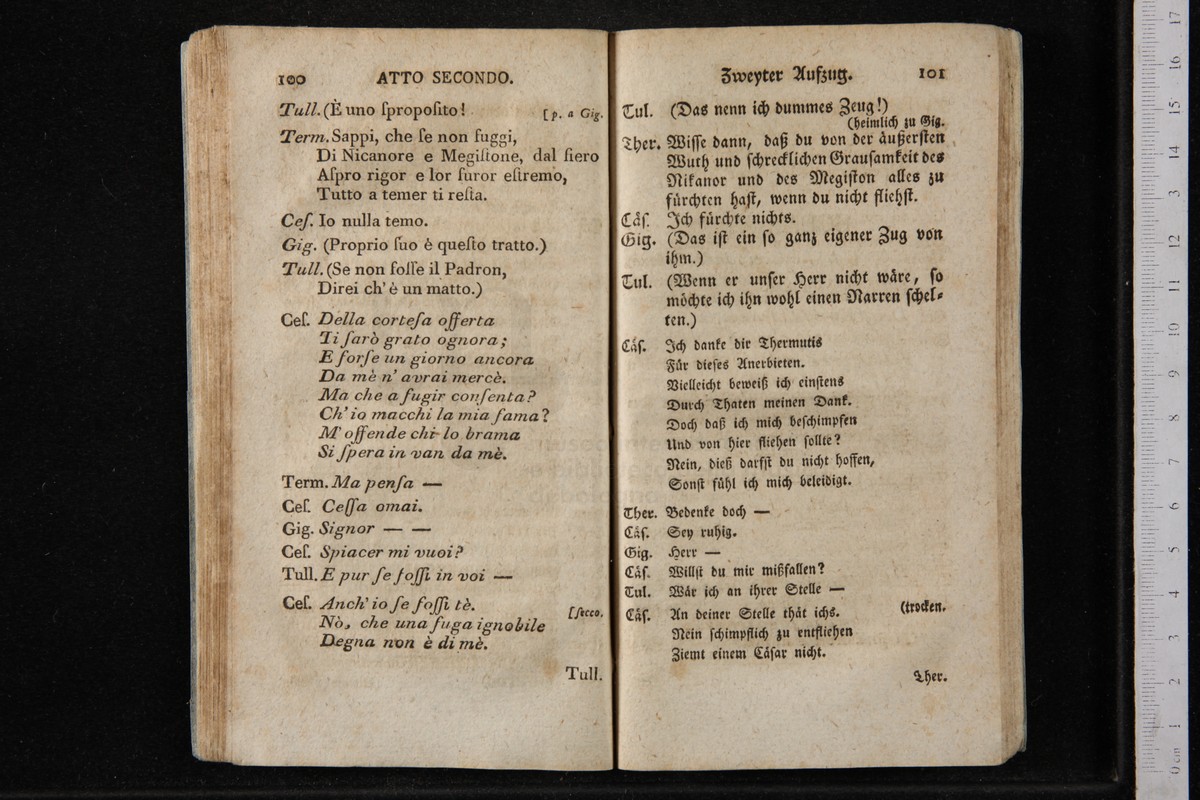 100 ATTO SECONDO.
Tull. (È uno ſpropoſito! [p. a Gig.
Term. Sappi, che ſe non fuggi,
Di Nicanore e Megiſtione, dal fiero
Aſpro rigor e lor furor eſtremo,
Tutto a temer ti reſta.
Ceſ. Io nulla temo.
Gig. (Proprio ſuo è queſto tratto.)
Tull. (Se non foſſe il Padron,
Direi ch' è un matto.)
Ceſ. Della corteſa offerta
Ti ſarò grato ognora;
E forſe un giorno ancora
Da mè n' avrai mercè.
Ma che a fugir conſenta?
Ch' io macchi la mia fama?
M' offende chi lo brama
Si ſpera in van da mè.
Term. Ma penſa —
Ceſ. Ceſſa omai.
Gig. Signor — —
Ceſ. Spiacer mi vuoi?
Tull. E pur ſe foſſi in voi —
Ceſ. Anch' io ſe foſſi tè. [ſecco.
Nò, che una fuga ignobile
Degna non è di mè.
Tull.
Zweyter Aufzug. 101
Tul. (Das nenn ich dummes Zeug!)
(heimlich zu Gig.
Ther. Wiſſe dann, daß du von der äußerſten
Wuth und ſchrecklichen Grauſamkeit des
Nikanor und des Megiſton alles zu
fürchten haſt, wenn du nicht fliehſt.
Cäſ. Ich fürchte nichts.
Gig. (Das iſt ein ſo ganz eigener Zug von
ihm.)
Tul. (Wenn er unſer Herr nicht wäre, ſo
möchte ich ihn wohl einen Narren ſchel-
ten.)
Cäſ. Ich danke dir Thermutis
Für dieſes Anerbieten.
Vielleicht beweiß ich einſtens
Durch Thaten meinen Dank.
Doch daß ich mich beſchimpfen
Und von hier fliehen ſollte?
Nein, dieß darfſt du nicht hoffen,
Sonſt fühl ich mich beleidigt.
Ther. Bedenke doch —
Cäſ. Sey ruhig.
Gig. Herr —
Cäſ. Willſt du mir mißfallen?
Tul. Wär ich an ihrer Stelle —
Cäſ. An deiner Stelle thät ichs. (trocken.
Nein ſchimpflich zu entfliehen
Ziemt einem Cäſar nicht.
Ther.